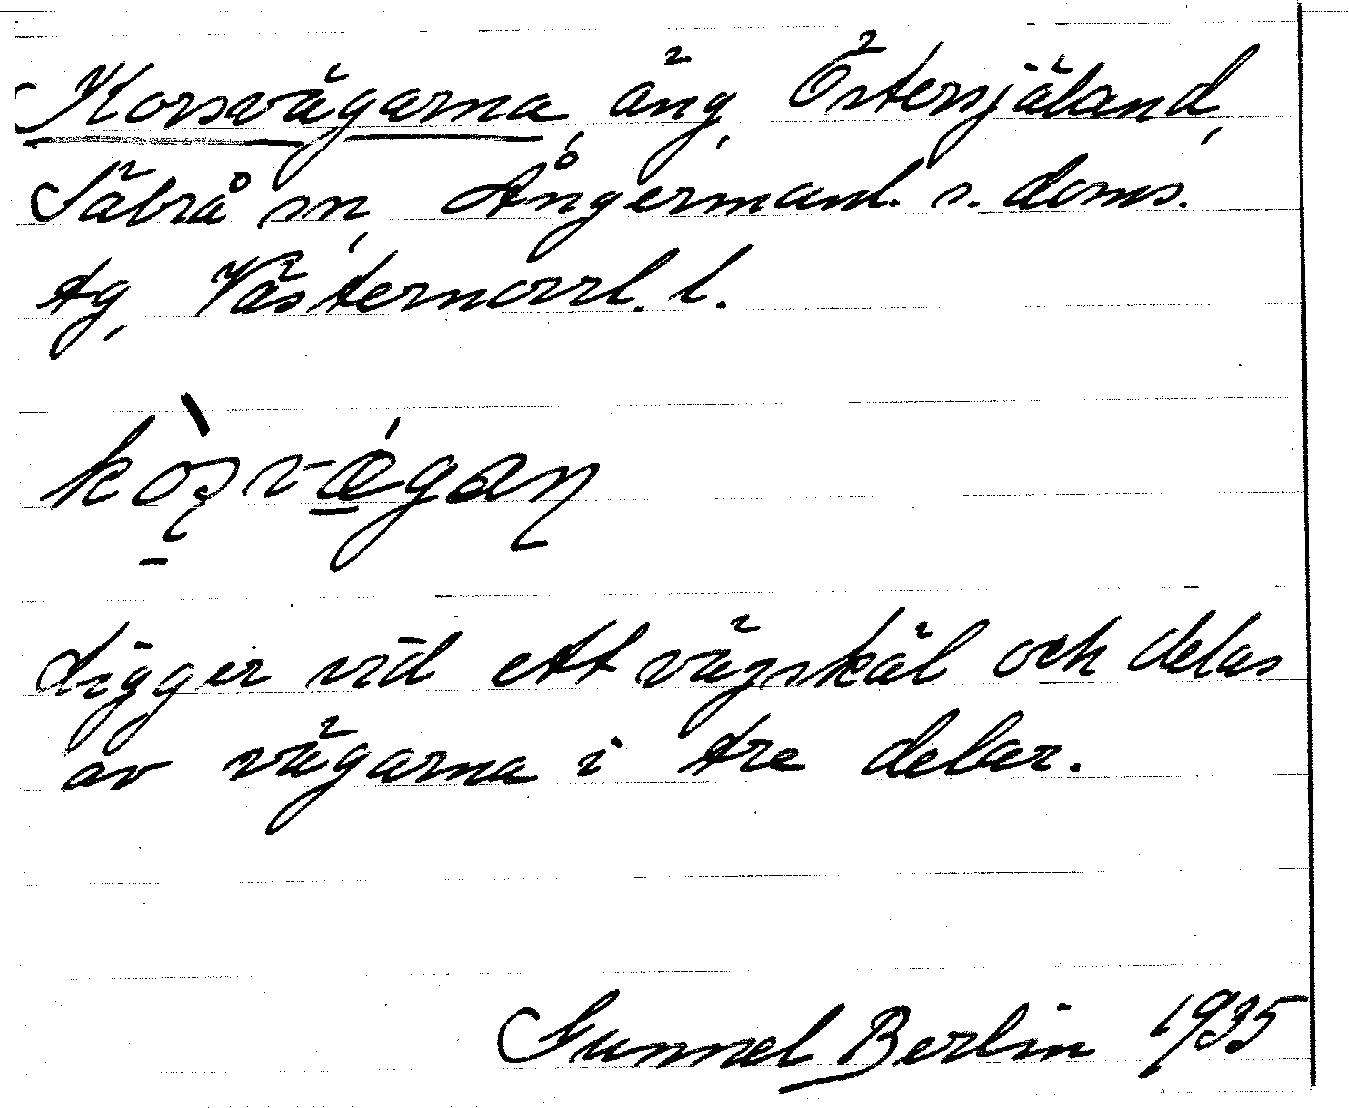 Korsvägarna, äng, Östersjäland,
Säbrå sn, Ångermanl. s. doms.
tg, Västernorrl. l.
ligger vid ett vägskäl och delas
av vägarna i tre delar.
Gunnel Berlin 1935